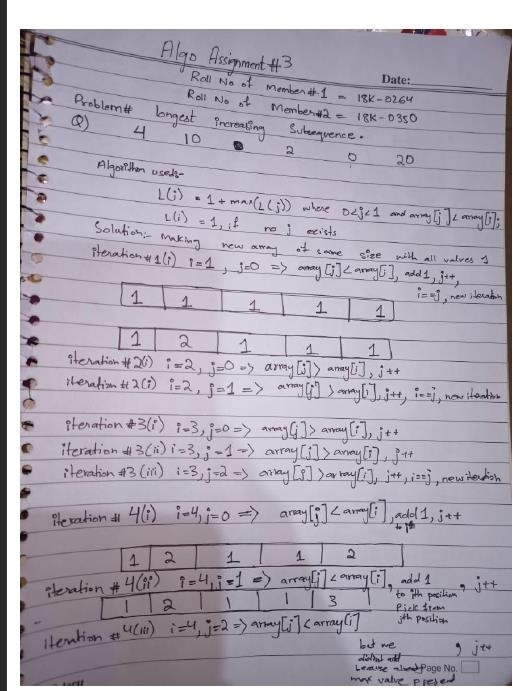 Algo Assignment #3
Date:
Roll No of Member #.1 = 18K-0264
Roll No of Member#2 = 18K-0350
Problem# longest increasing Subsequence.
Q) 4 10 2 0 20
Algorithm used:-
L(i) = 1 + max(L(j)) where 0<j<1 and array[j]<array[i];
L(i) = 1, if no j exists
Solution:- Making new array of same size with all valves 1
iteration #1(i) i=1, j=0 => array[j]<array[i], add 1, j++,
i==j, new iteration
1 1 1 1 1
1 2 1 1 1
iteration #2(i) i=2, j=0 => array[j]>array[i], j++
iteration #2(i) i=2, j=1 => array[j]>array[i], j++, i==j, new iteration
iteration #3(i) i=3, j=0 => array[j]>array[i], j++
iteration #3(ii) i=3, j=1 => array[j]>array[i], j++
iteration #3(iii) i=3, j=2 => array[j]>array[i], j++, i==j, new iteration
iteration # 4(i) i=4, j=0 => array[j]<array[i], add 1, j++
1 2 1 1 2
iteration # 4(ii) i=4, j=1 => array[j]<array[i], add 1, j++
to ith position
Pick from
jth position
1 2 1 1 3
iteration # 4(iii) i=4, j=2 => array[j]<array[i]
but we, j++
didnt add
because
Page No.
max value present